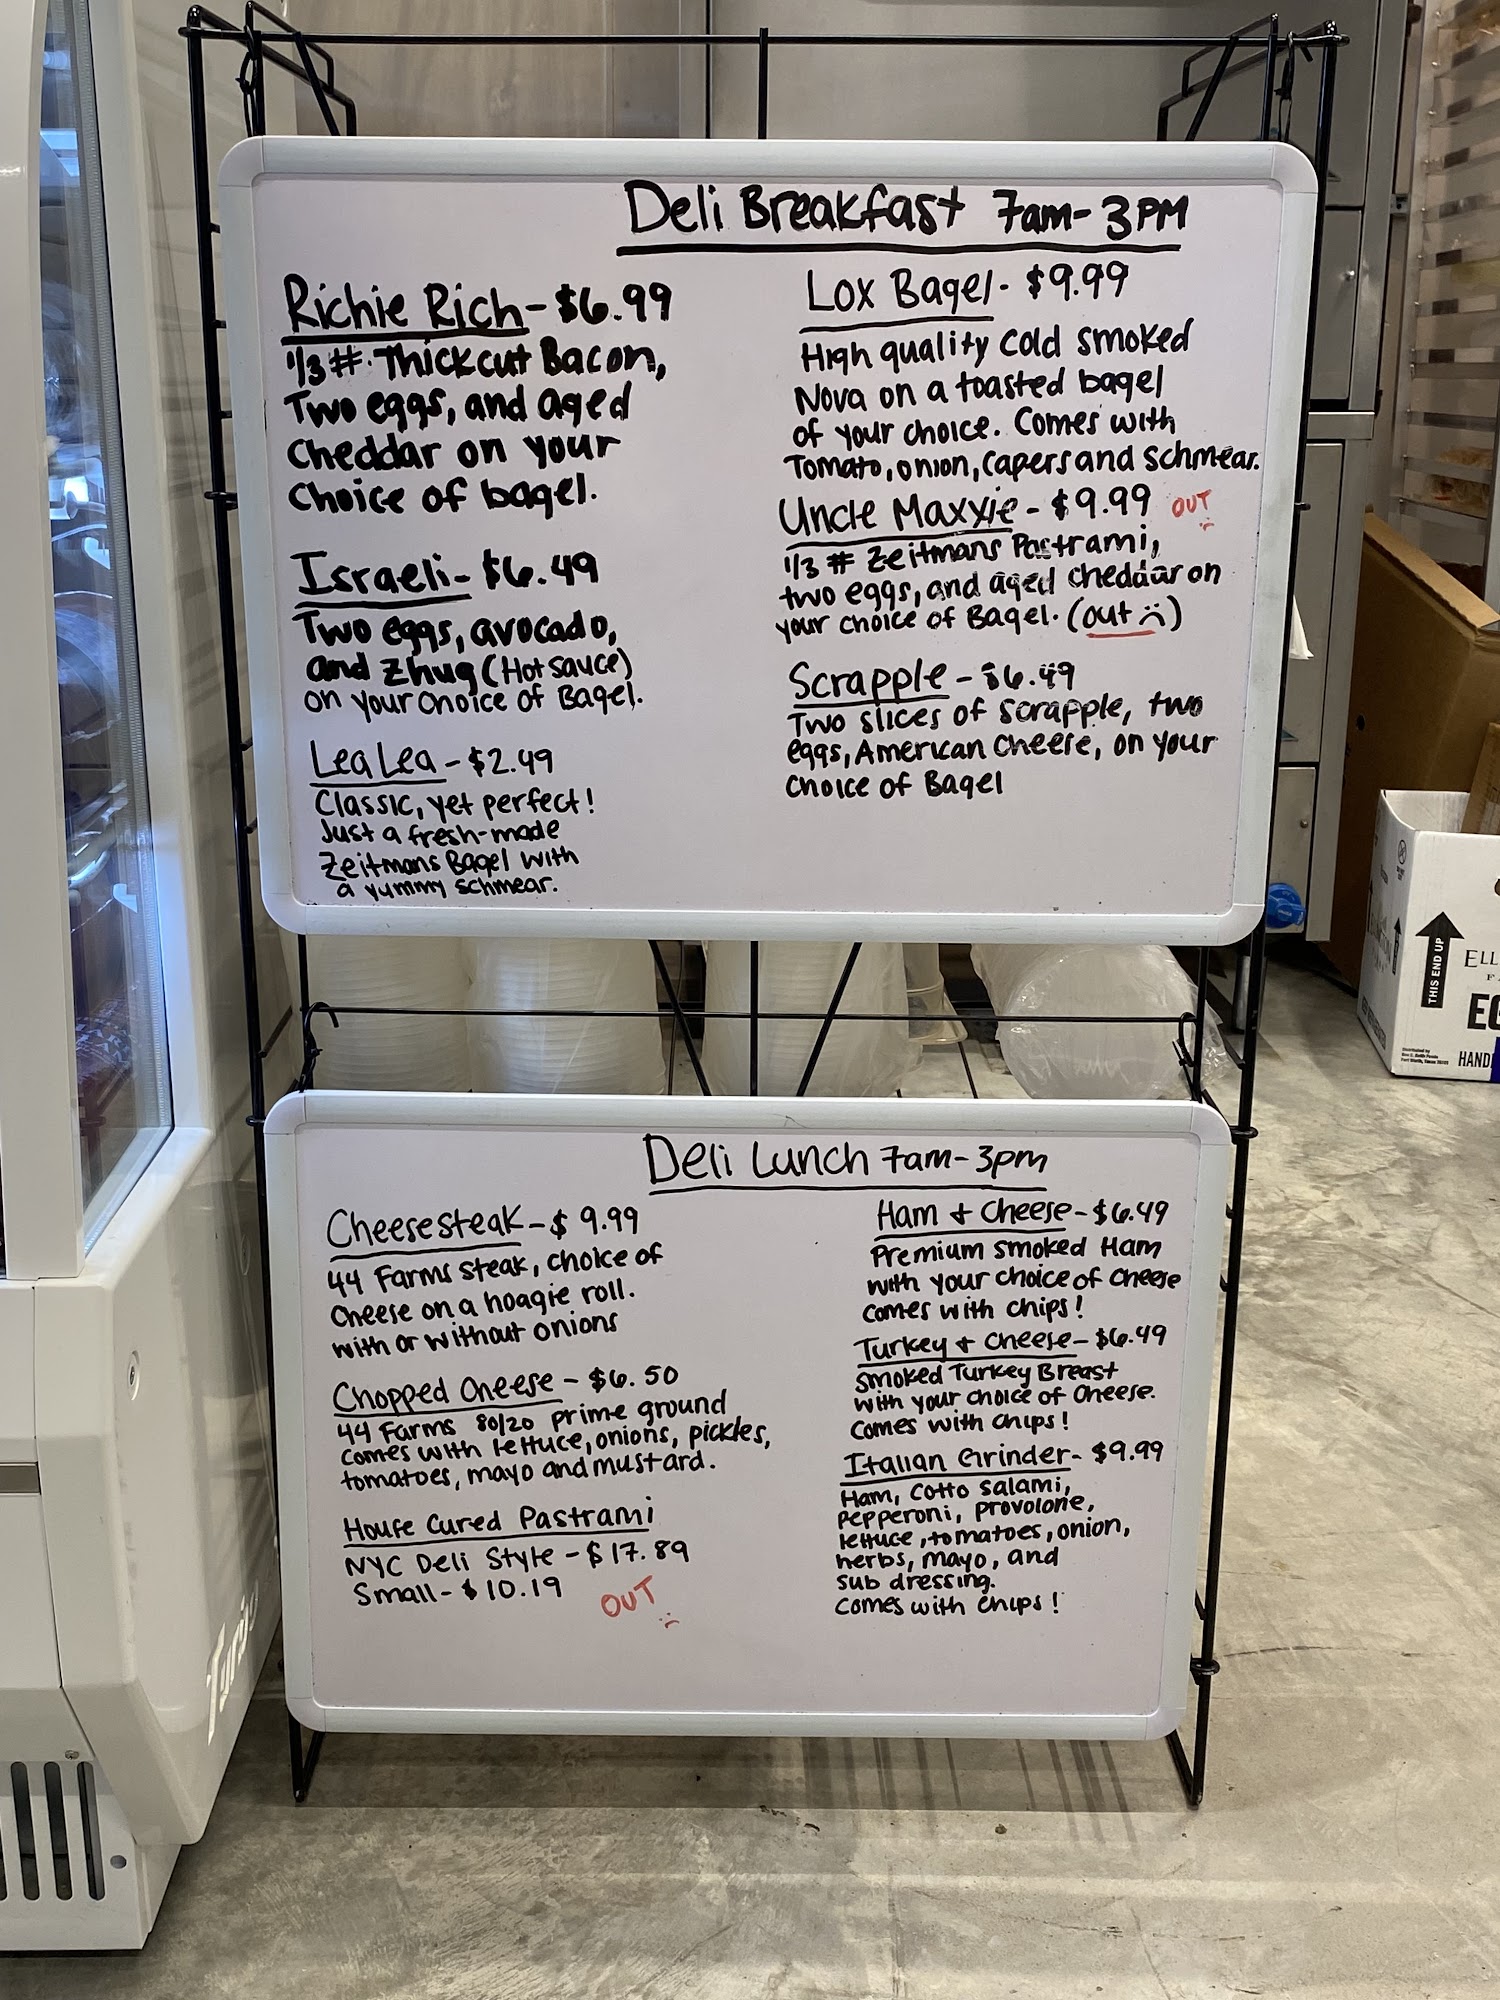 Deli Breakfast 7am-3PM
Richie Rich-$6.99
1/3# Thickcut Bacon,
Two eggs, and aged
Cheddar on your
Choice of bagel.
Israeli-$6.49
Two eggs, avocado,
and Zhug (Hot sauce)
on your choice of Bagel.
Lea Lea-$2.49
Classic, yet perfect!
Just a fresh-made
Zeitmans Bagel with
a yummy schmear.
Lox Bagel-$9.99
High quality cold smoked
Nova on a toasted bagel
of your choice. Comes with
Tomato, onion, capers and schmear.
Uncle Maxxie-$9.99 OUT
1/3 # Zeitmans Pastrami,
two eggs, and aged cheddar on
your choice of Bagel. (out ☹)
Scrapple-$6.49
Two slices of scrapple, two
eggs, American cheese, on your
choice of Bagel
Deli Lunch 7am-3pm
Cheesesteak-$9.99
44 Farms steak, choice of
cheese on a hoagie roll.
with or without onions
Chopped Cheese-$6.50
44 Farms 80/20 prime ground
comes with lettuce, onions, pickles,
tomatoes, mayo and mustard.
House Cured Pastrami
NYC Deli Style-$17.89
Small-$10.19 OUT
Ham + Cheese-$6.49
Premium smoked Ham
with your choice of cheese
comes with chips!
Turkey + Cheese-$6.49
Smoked Turkey Breast
with your choice of cheese.
comes with chips!
Italian Grinder-$9.99
Ham, Cotto Salami,
Pepperoni, provolone,
lettuce, tomatoes, onion,
herbs, mayo, and
sub dressing.
comes with chips!
THIS END UP